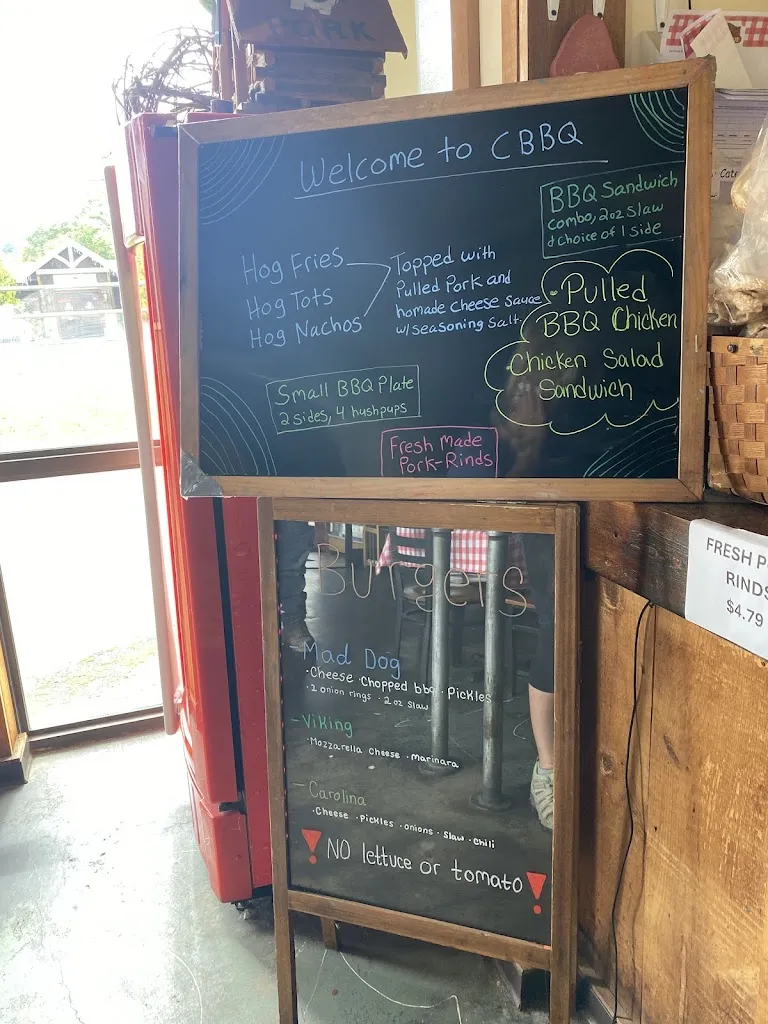 PORK
Welcome to CBBQ
BBQ Sandwich
combo, 2oz slaw
& choice of 1 side
Hog Fries
Hog Tots
Hog Nachos
Topped with
Pulled Pork and
homade cheese sauce
w/ seasoning salt.
• Pulled
BBQ Chicken
• Chicken Salad
Sandwich
Small BBQ Plate
2 sides, 4 hushpups
Fresh made
Pork-Rinds
Burgers
Mad Dog
• Cheese • Chopped bbq • Pickles
• 2 onion rings • 2oz slaw
- Viking
• Mozzarella cheese • marinara
- Carolina
• Cheese • pickles • onions • slaw • chili
! NO lettuce or tomato !
FRESH P
RINDS
$4.79
Cate